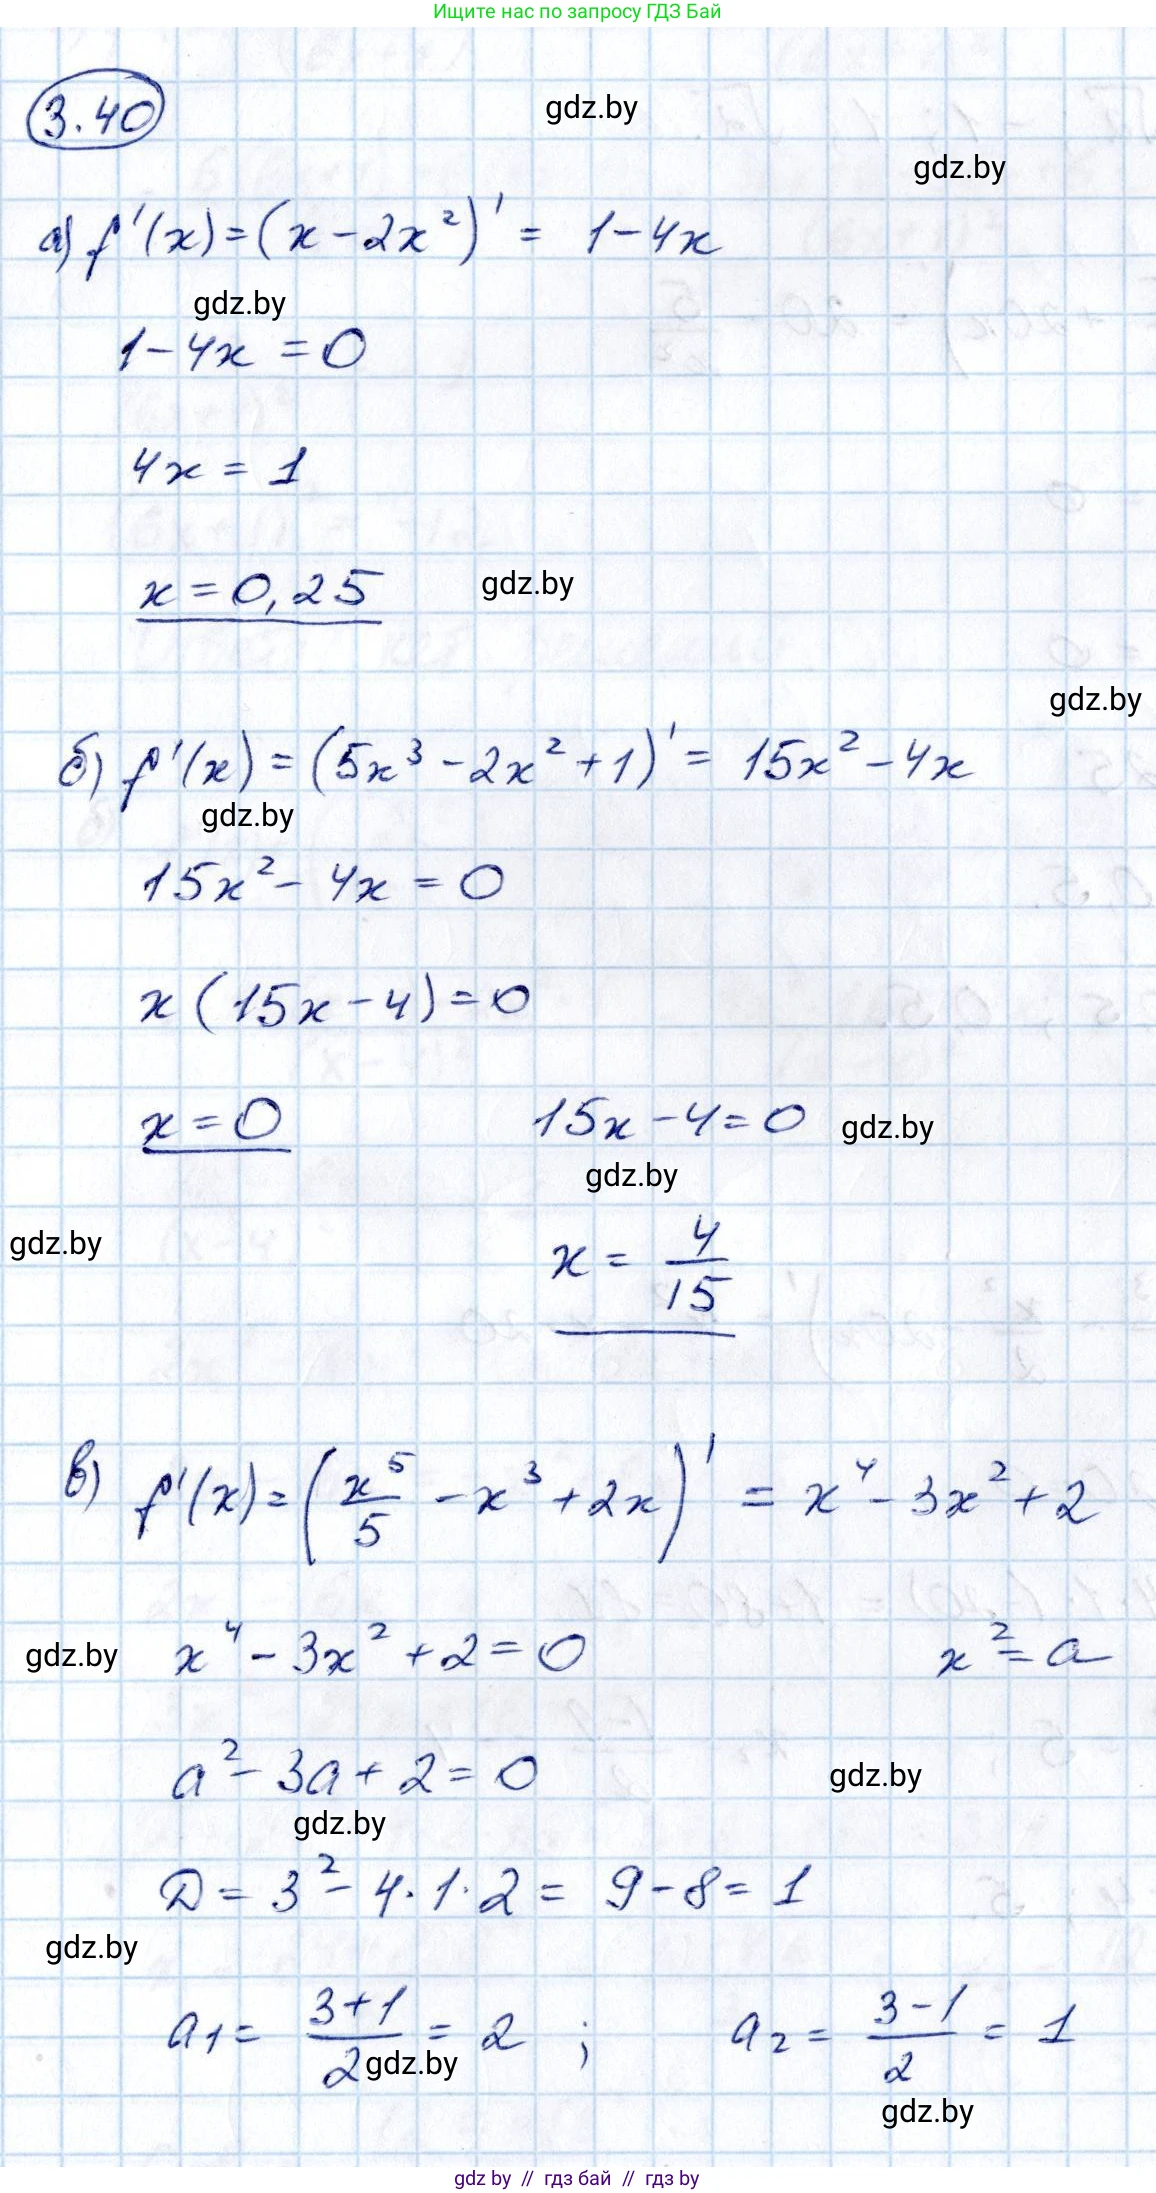 Ищите нас по запросу ГДЗ Бай
3.40
gdz.by
gdz.by
а) f'(x) = (x - 2x²)' = 1 - 4x
gdz.by
1 - 4x = 0
4x = 1
x = 0,25
gdz.by
gdz.by
б) f'(x) = (5x³ - 2x² + 1)' = 15x² - 4x
gdz.by
15x² - 4x = 0
x (15x - 4) = 0
x = 0 15x - 4 = 0
gdz.by
gdz.by
gdz.by
x = 4/15
в) f'(x) = (x⁵/5 - x³ + 2x)' = x⁴ - 3x² + 2
gdz.by
x⁴ - 3x² + 2 = 0 x² = a
a² - 3a + 2 = 0
gdz.by
gdz.by
D = 3² - 4·1·2 = 9 - 8 = 1
gdz.by
a₁ = (3+1)/2 = 2 ; a₂ = (3-1)/2 = 1
gdz.by
gdz.by
gdz by // гдз бай // гдз by